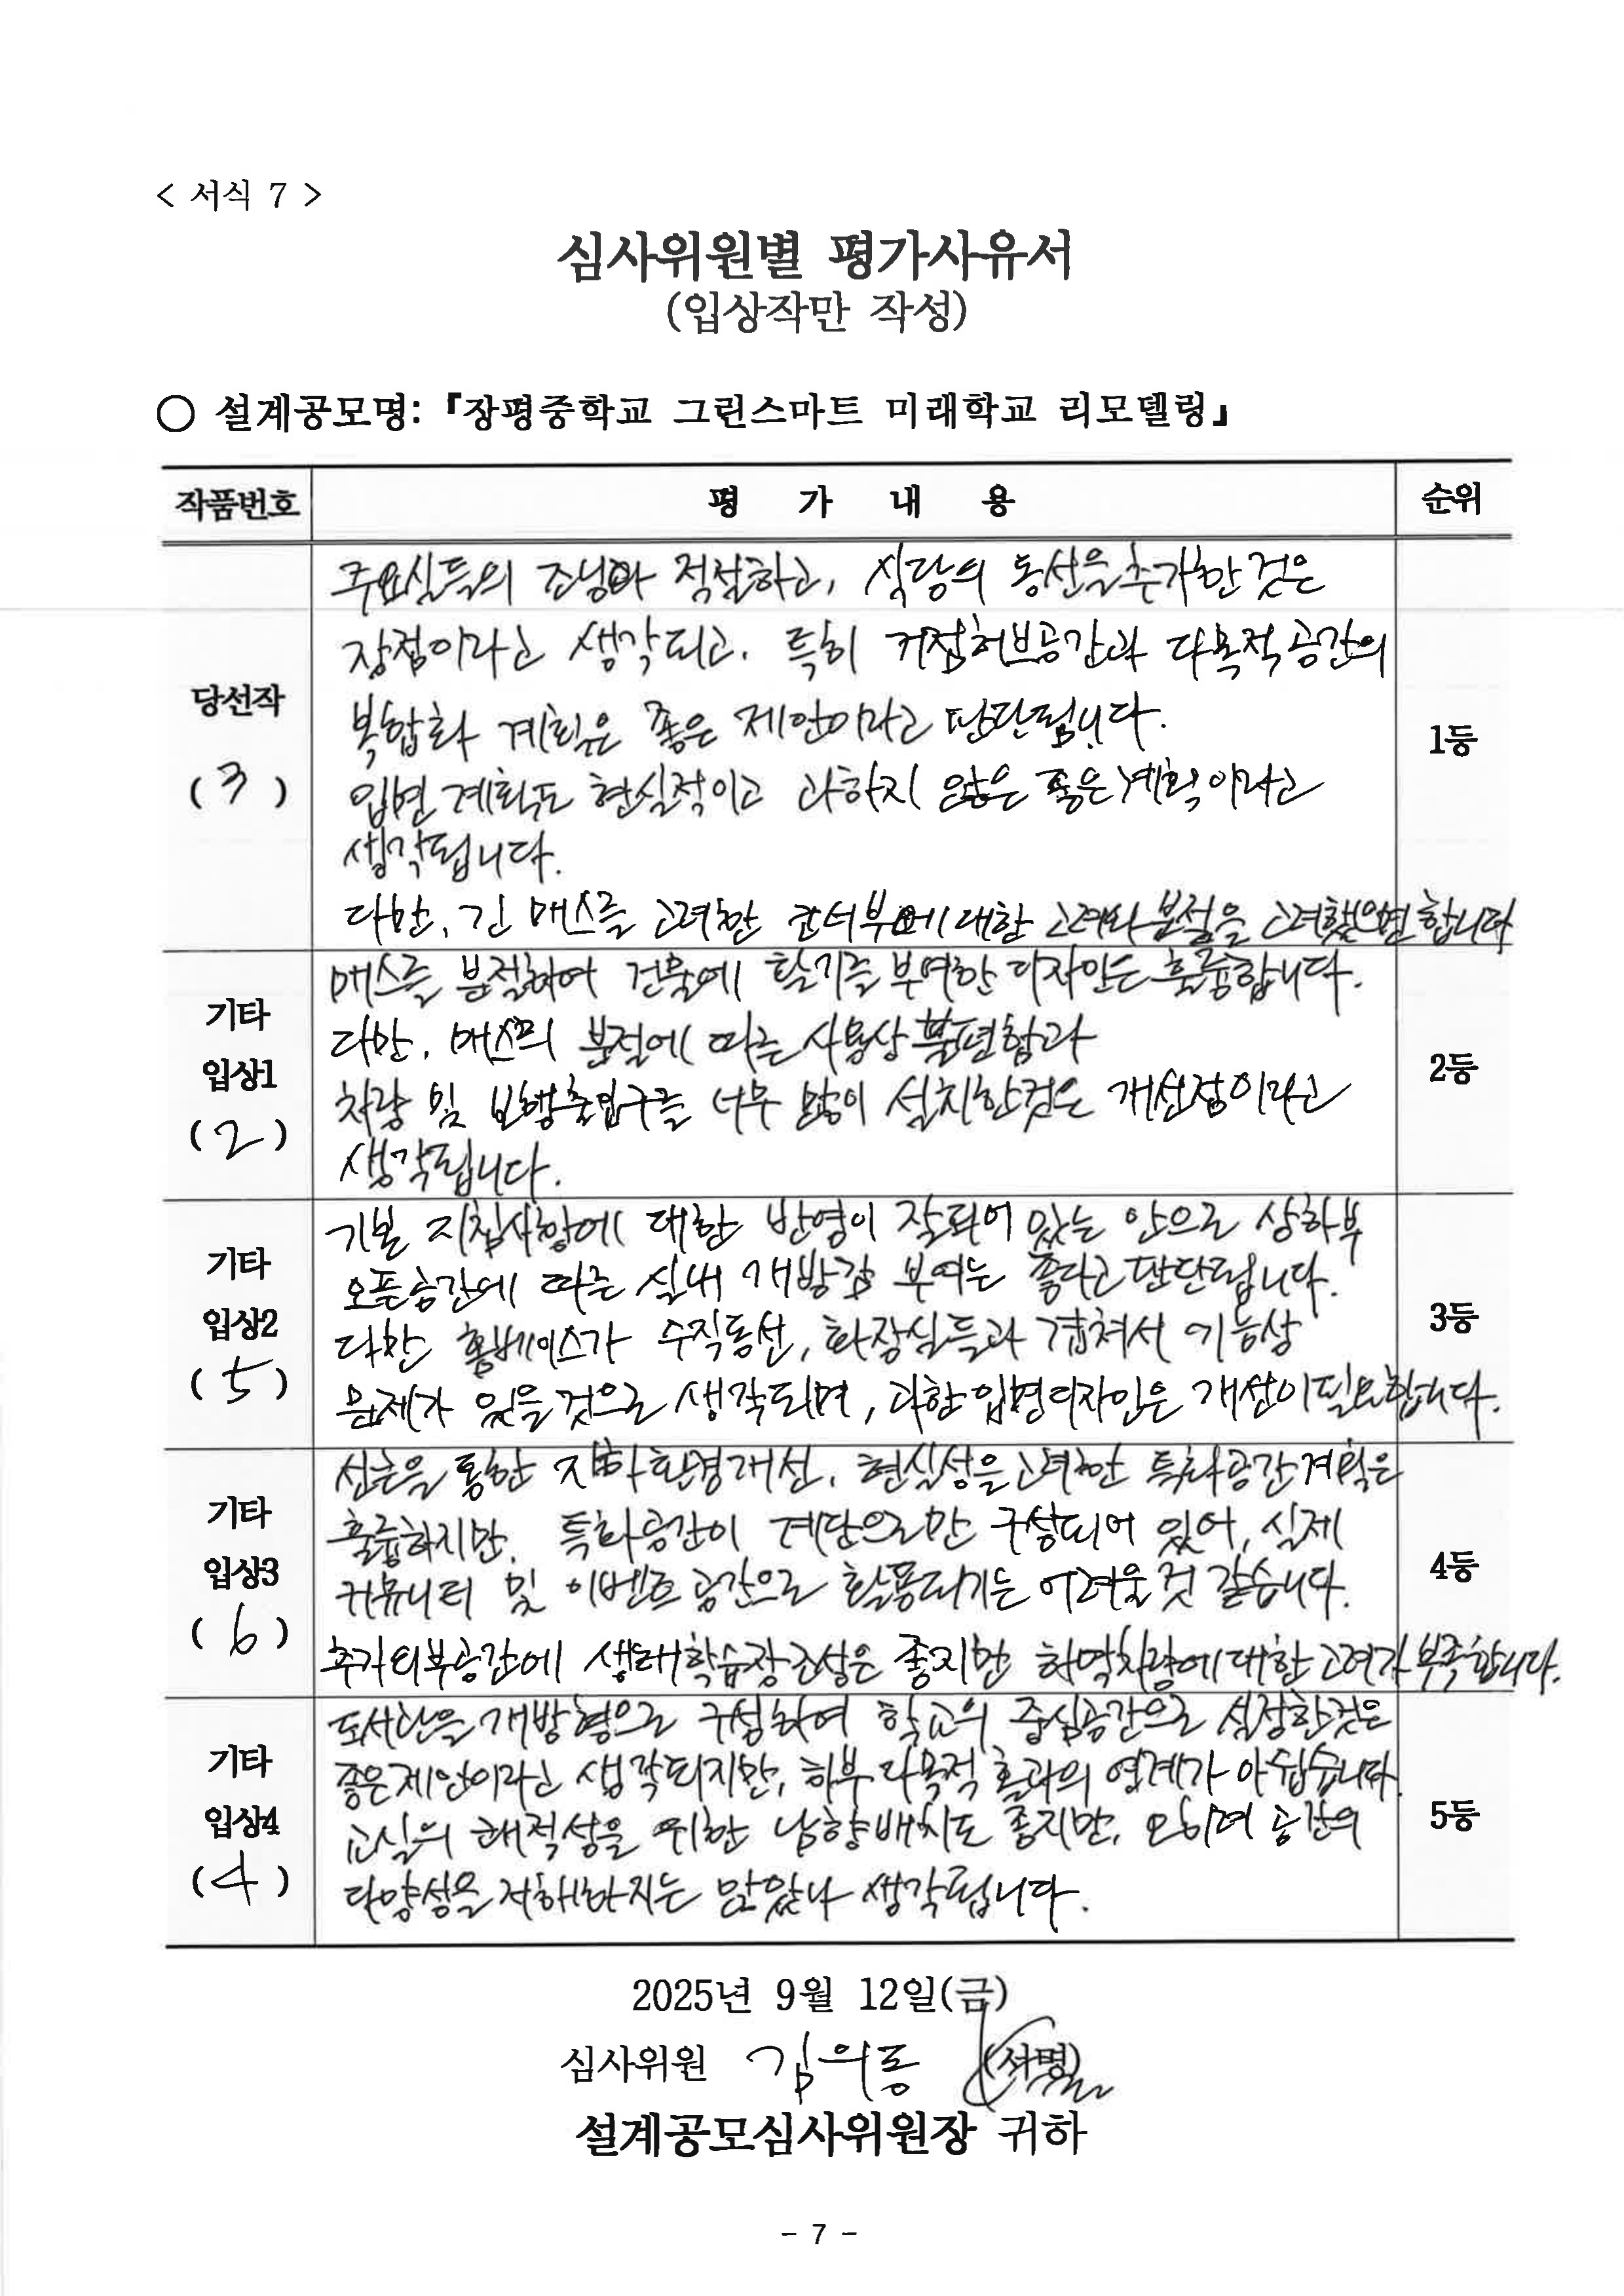 < 서식 7 >
심사위원별 평가사유서
(입상작만 작성)
○ 설계공모명:『장평중학교 그린스마트 미래학교 리모델링』
작품번호 평 가 내 용 순위
당선작
( 3 )
주요실들의 조닝이 적절하고, 식당의 동선을 추가한 것은
장점이라고 생각되고, 특히 거점허브공간과 다목적공간의
복합화 계획은 좋은 제안이라고 판단됩니다.
입면 계획도 현실적이고 과하지 않은 좋은 계획이라고
생각됩니다.
다만, 긴 매스를 고려한 코너부에 대한 고려와 분절을 고려했으면 합니다
1등
기타
입상1
( 2 )
매스를 분절하여 건물에 활기를 부여한 디자인은 훌륭합니다.
다만, 매스의 분절에 따른 사용상 불편함과
차량 및 보행출입구를 너무 많이 설치한것은 개선점이라고
생각됩니다.
2등
기타
입상2
( 5 )
기본 지침사항에 대한 반영이 잘되어 있는 안으로 상하부
오픈공간에 따른 실내 개방감 부여는 좋다고 판단됩니다.
다만 홈베이스가 수직동선, 화장실들과 겹쳐서 기능상
문제가 있을 것으로 생각되며, 과한 입면디자인은 개선이 필요합니다.
3등
기타
입상3
( 6 )
선큰을 통한 지하환경개선, 현실성을 고려한 특화공간계획은
훌륭하지만, 특화공간이 계단으로만 구상되어 있어, 실제
커뮤니티 및 이벤트 공간으로 활용되기는 어려울 것 같습니다.
추가외부공간에 생태학습장 조성은 좋지만 하역차량에 대한 고려가 부족합니다.
4등
기타
입상4
( 4 )
도서관을 개방형으로 구성하여 학교의 중심공간으로 설정한것은
좋은제안이라고 생각되지만, 하부 다목적 홀과의 연계가 아쉽습니다
교실의 쾌적성을 위한 남향배치도 좋지만, 오히려 공간의
다양성을 저해하지는 않았나 생각됩니다.
5등
2025년 9월 12일(금)
심사위원 김의동 (서명)
설계공모심사위원장 귀하
- 7 -